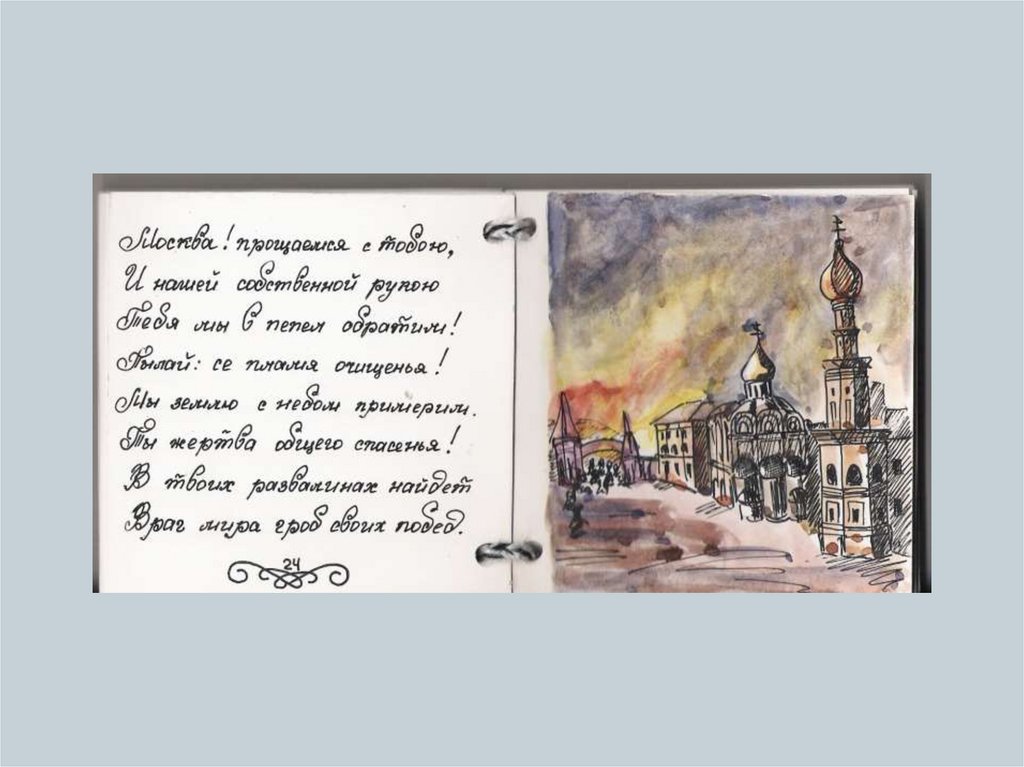 Москва! прощаемся с тобою,
И нашей собственной рукою
Тебя мы в пепел обратим!
Пылай: се пламя очищенья!
Мы землю с небом примерим.
Ты жертва общего спасенья!
В твоих развалинах найдет
Враг мира гроб своих побед.
24